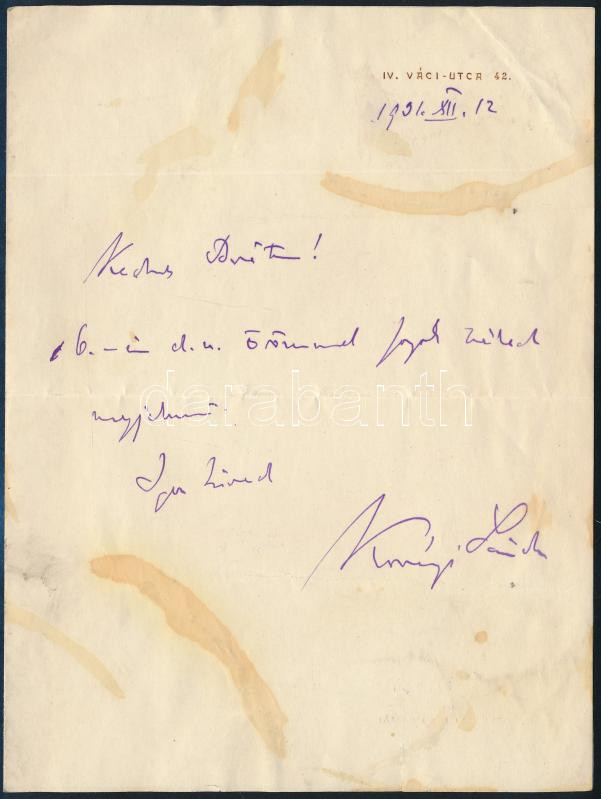 IV. VÁCI-UTCA 42.
1931. XII. 12
Kedves Barátom!
16.-án d.u. örömmel fogok nálad
megjelenni.
Igaz híved
Korányi Sándor
darabanth